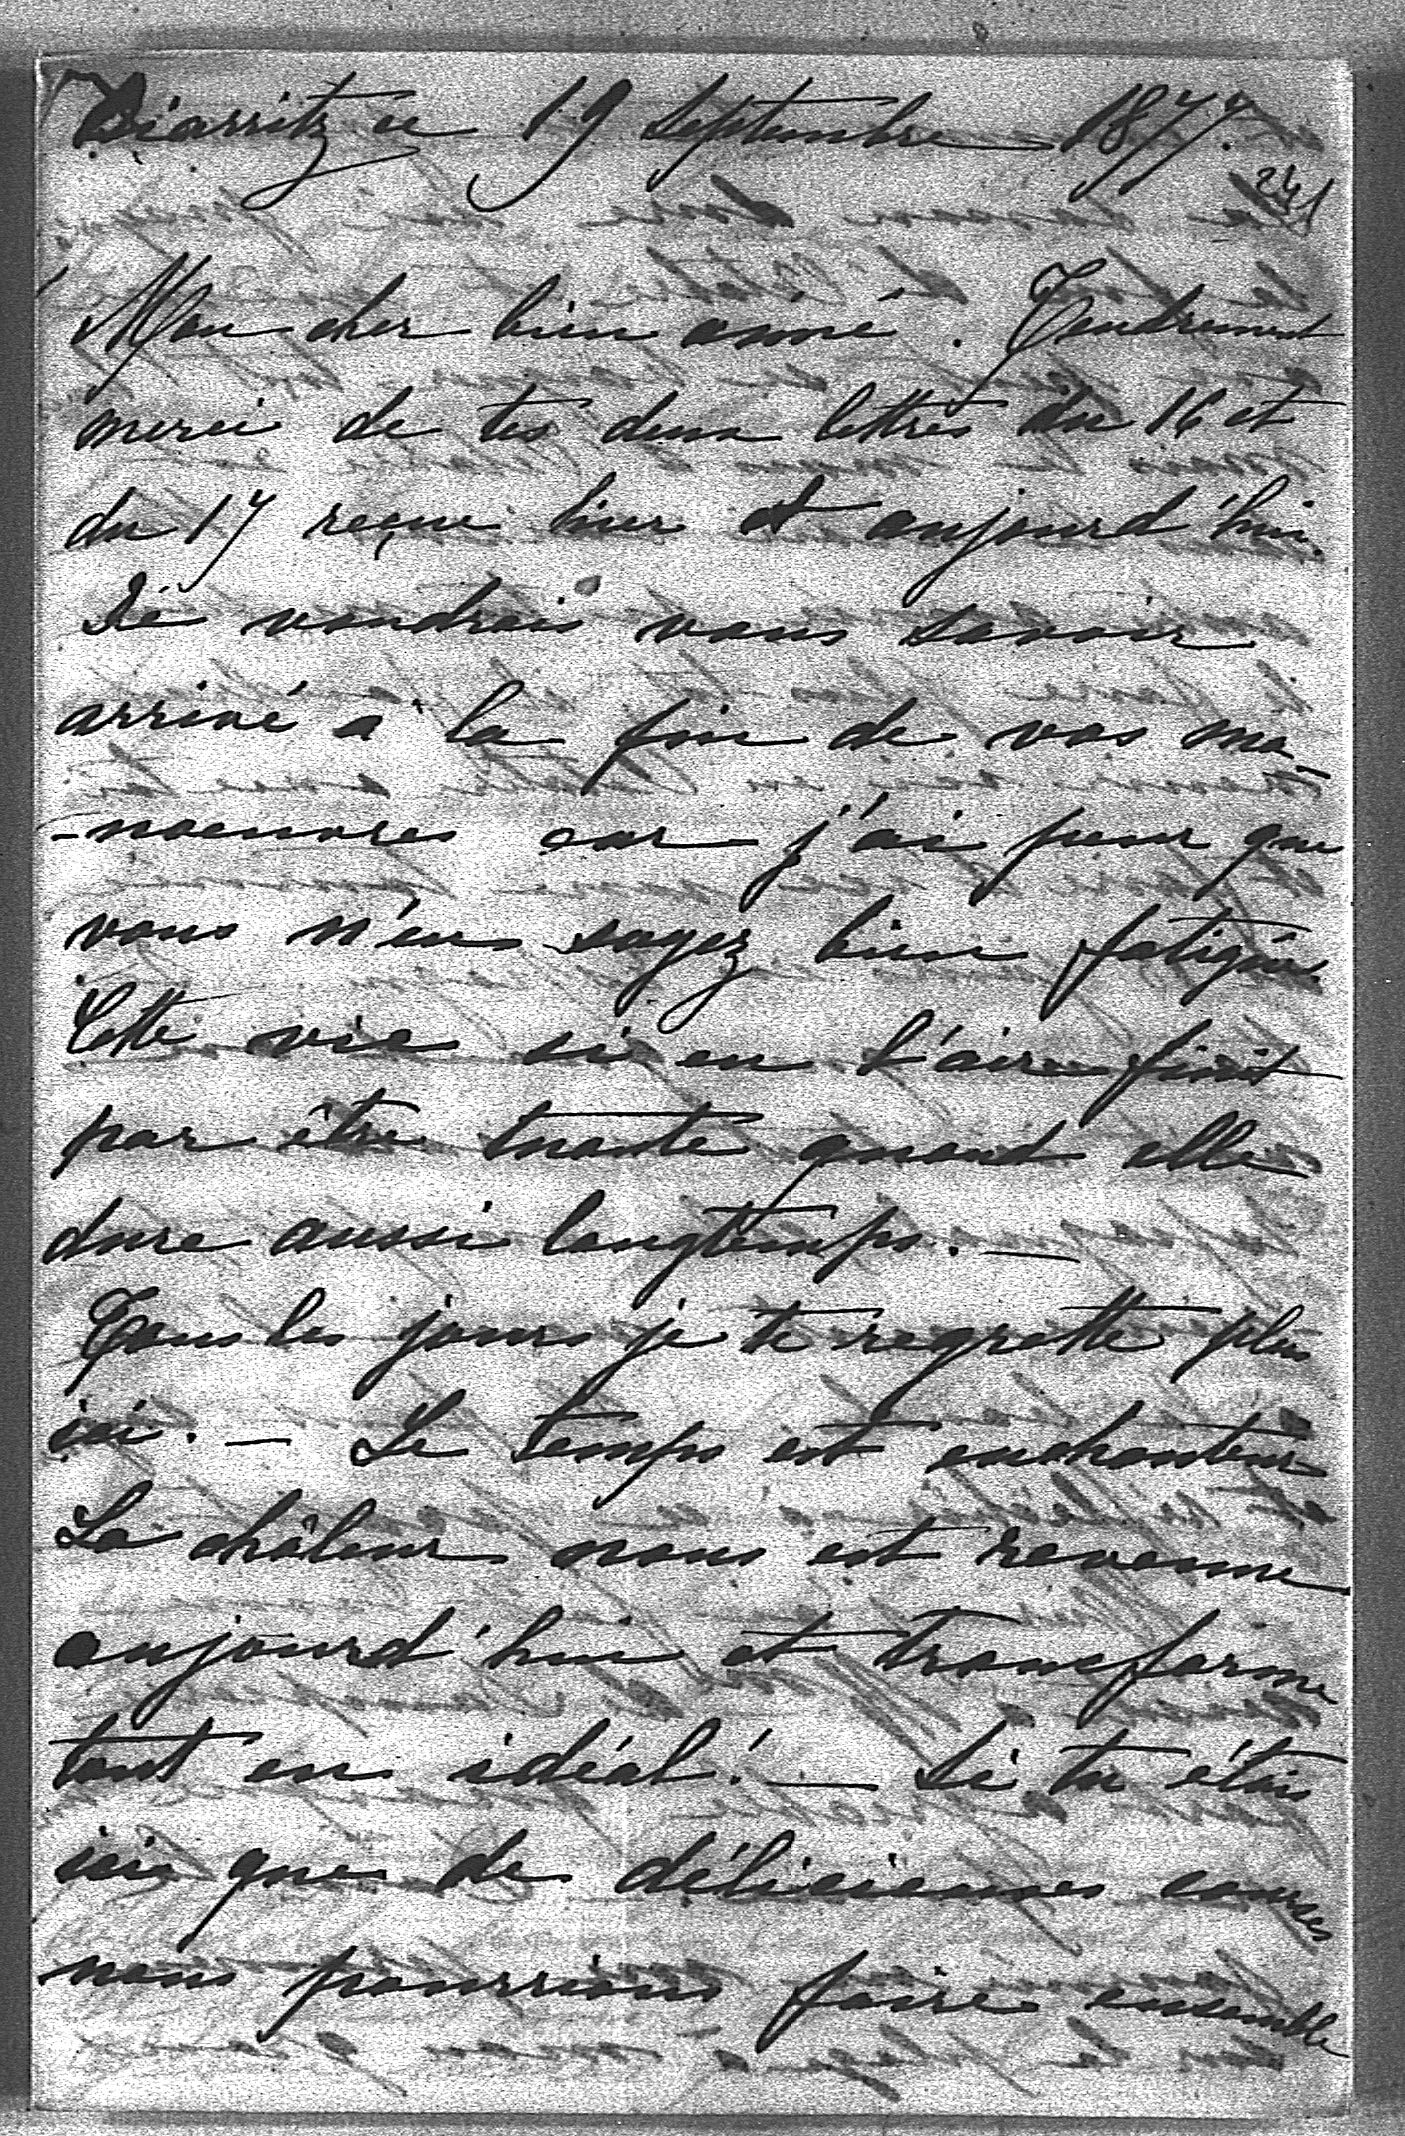 Biarritz ce 19 Septembre 1877.
241
Mon cher bien aimé. Tendrement
merci de tes deux lettres du 16 et
du 17 reçue hier et aujourd'hui.
Je voudrais vous savoir
arrivé à la fin de vos ma-
-noeuvres car j'ai peur que
vous n'en soyez bien fatigué
Cette vie si en l'air finit
par être tuante quand elle
dure aussi longtemps. —
Tous les jours je te regrette plus
ici. — Le temps est enchanteur
La châleur nous est revenue
aujourd'hui et transforme
tout en idéal! — Si tu étais
ici que de délicieuses courses
nous pourrions faire ensemble